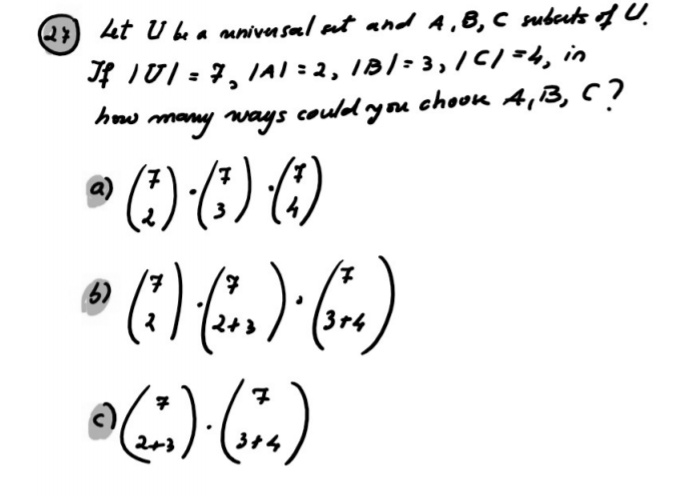 27) Let U be a universal set and A, B, C subsets of U.
If |U| = 7, |A| = 2, |B| = 3, |C| = 4, in
how many ways could you choose A, B, C?
a) (7 2) · (7 3) · (7 4)
b) (7 2) · (7 2+3) · (7 3+4)
c) (7 2+3) · (7 3+4)